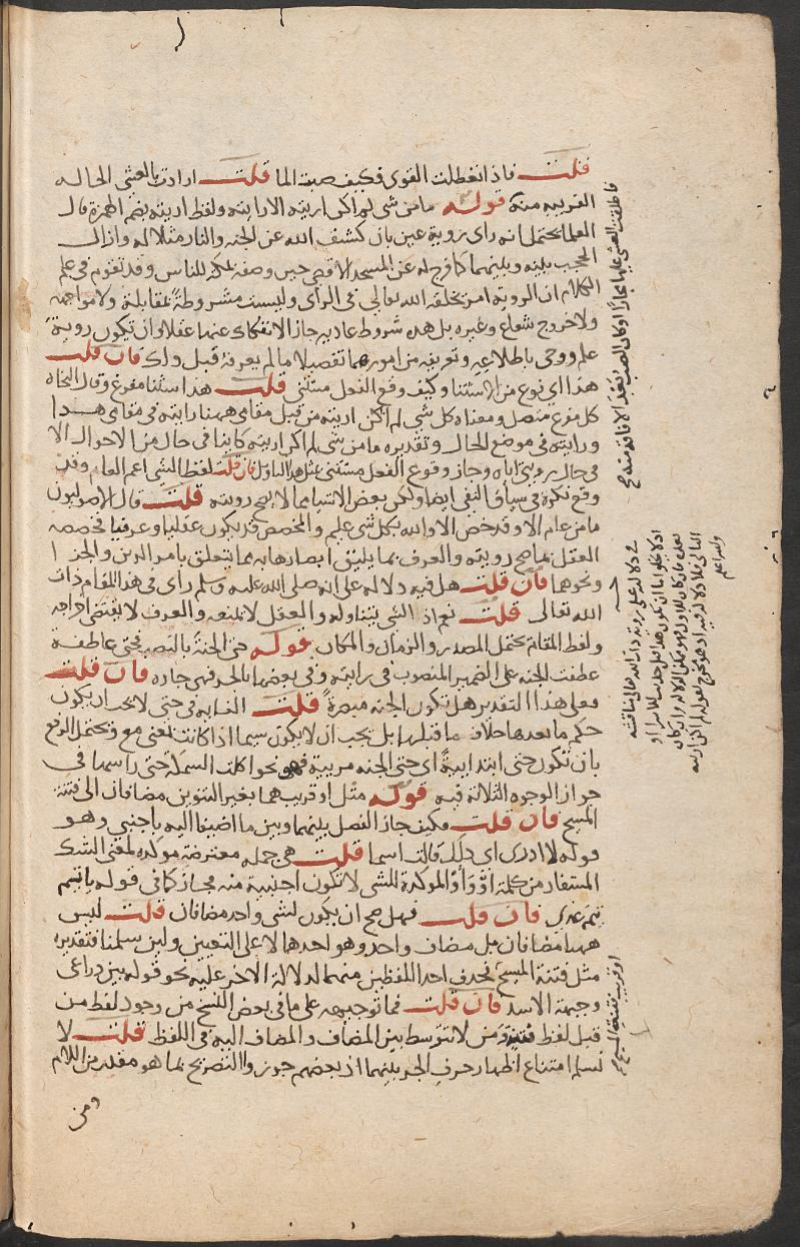 قلت فاذا تعطلت القوى فكيف صبت الما قلت ارادت بالغشي الحاله
القريبه منه قوله ما من شي لم اكن اريته الا رايته ولفظ اريته بضم الهمزة قال
العلما يحتمل انه راى روية عين بان كشف الله عن الجنه والنار مثلا له وازال
الحجب بينه وبينهما كما فرج له عن المسجد الاقصى حين وصفه بمكه للناس وقد تقرر في علم
الكلام ان الرويه امر يخلقه الله تعالى في الرائ وليست مشروطة بمقابلة ولا مواجهه
ولا خروج شعاع وغيره بل هذه شروط عاديه جاز الانفكاك عنها عقلا وان تكون روية
علم ووحي باطلاعه وتعريفه من امورهما تفصيلا ما لم يعرفه قبل ذلك فان قلت
هذا اي نوع من الاستثنا وكيف وقع الفعل مستثنى قلت هذا استثنا مفرغ وقال النحاة
كل مفرغ متصل ومعناه كل شي لم اكن اريته من قبل مقامي ههنا رايته في مقامي هذا
ورايته في موضع الحال وتقديره ما من شي لم اكن اريته كاينا في حال من الاحوال الا
في حال رويتي اياه وجاز وقوع الفعل مستثنى بمثل هذا التاويل فان قلت لفظ الشي اعم العام وقد
وقع نكرة في سياق النفي ايضا ولكن بعض الاشيا مما لا يصح رويته قلت قال الاصوليون
ما من عام الا وقد خص الا والله بكل شي عليم والمخصص قد يكون عقليا وعرفيا فخصصه
العقل بما صح رويته والعرف بما يليق ابصارها به مما يتعلق بامر الدين والجزا
ونحوهما فان قلت هل فيه دلالة على انه صلى الله عليه وسلم راى في هذا المقام ذات
الله تعالى قلت نعم اذ الشي يتناوله والعقل لا يمنعه والعرف لا يقتضي اخراجه
ولفظ المقام يحتمل المصدر والزمان والمكان قوله حتى الجنة بالنصب فحتى عاطفة
عطفت الجنه على الضمير المنصوب في رايته وفي بعضها بالجر فهي جاره فان قلت
فعلى هذا التقدير هل تكون الجنه مبصرة قلت الغايه في حتى لا يجب ان يكون
حكم ما بعدها خلاف ما قبلها بل يجب ان لا يكون سيما اذا كانت بمعنى مع ويحتمل الرفع
بان تكون حتى ابتدايية اي حتى الجنه مرييه فهو نحو اكلت السمكة حتى راسها في
جواز الوجوه الثلاثه فيه قوله مثل او قريب هما بغير التنوين مضافان الى فتنة
المسيح فان قلت فكيف جاز الفصل بينهما وبين ما اضيفا اليه باجنبي وهو
قوله لا ادري اي ذلك قالت اسما قلت هي جمله معترضة موكده لمعنى الشك
المستفاد من كلمة او والموكدة للشي لا تكون اجنبية منه فجاز كما في قوله يا تيم
تيم عدي فان قلت فهل صح ان يكون لشي واحد مضافان قلت ليس
ههنا مضافان بل مضاف واحد وهو احدهما لا على التعيين ولين سلمنا فتقديره
مثل فتنة المسيح فحذف احد اللفظين منهما لدلالة الاخر عليه نحو قوله بين ذراعي
وجبهة الاسد فان قلت فما توجيهه على ما في بعض النسخ من وجود لفظ من
قبل لفظ فتنة ومن لا تتوسط بين المضاف والمضاف اليه في اللفظ قلت لا
نسلم امتناع اظهار حرف الجر بينهما اذ بعضهم جوزوا التصريح بما هو مقدر من اللام
ومن
فاطلقت الغشي عليها مجازا او كان الصب بعد الافاقه منه صح
او قريب فتنة المسيح
والله اعلم